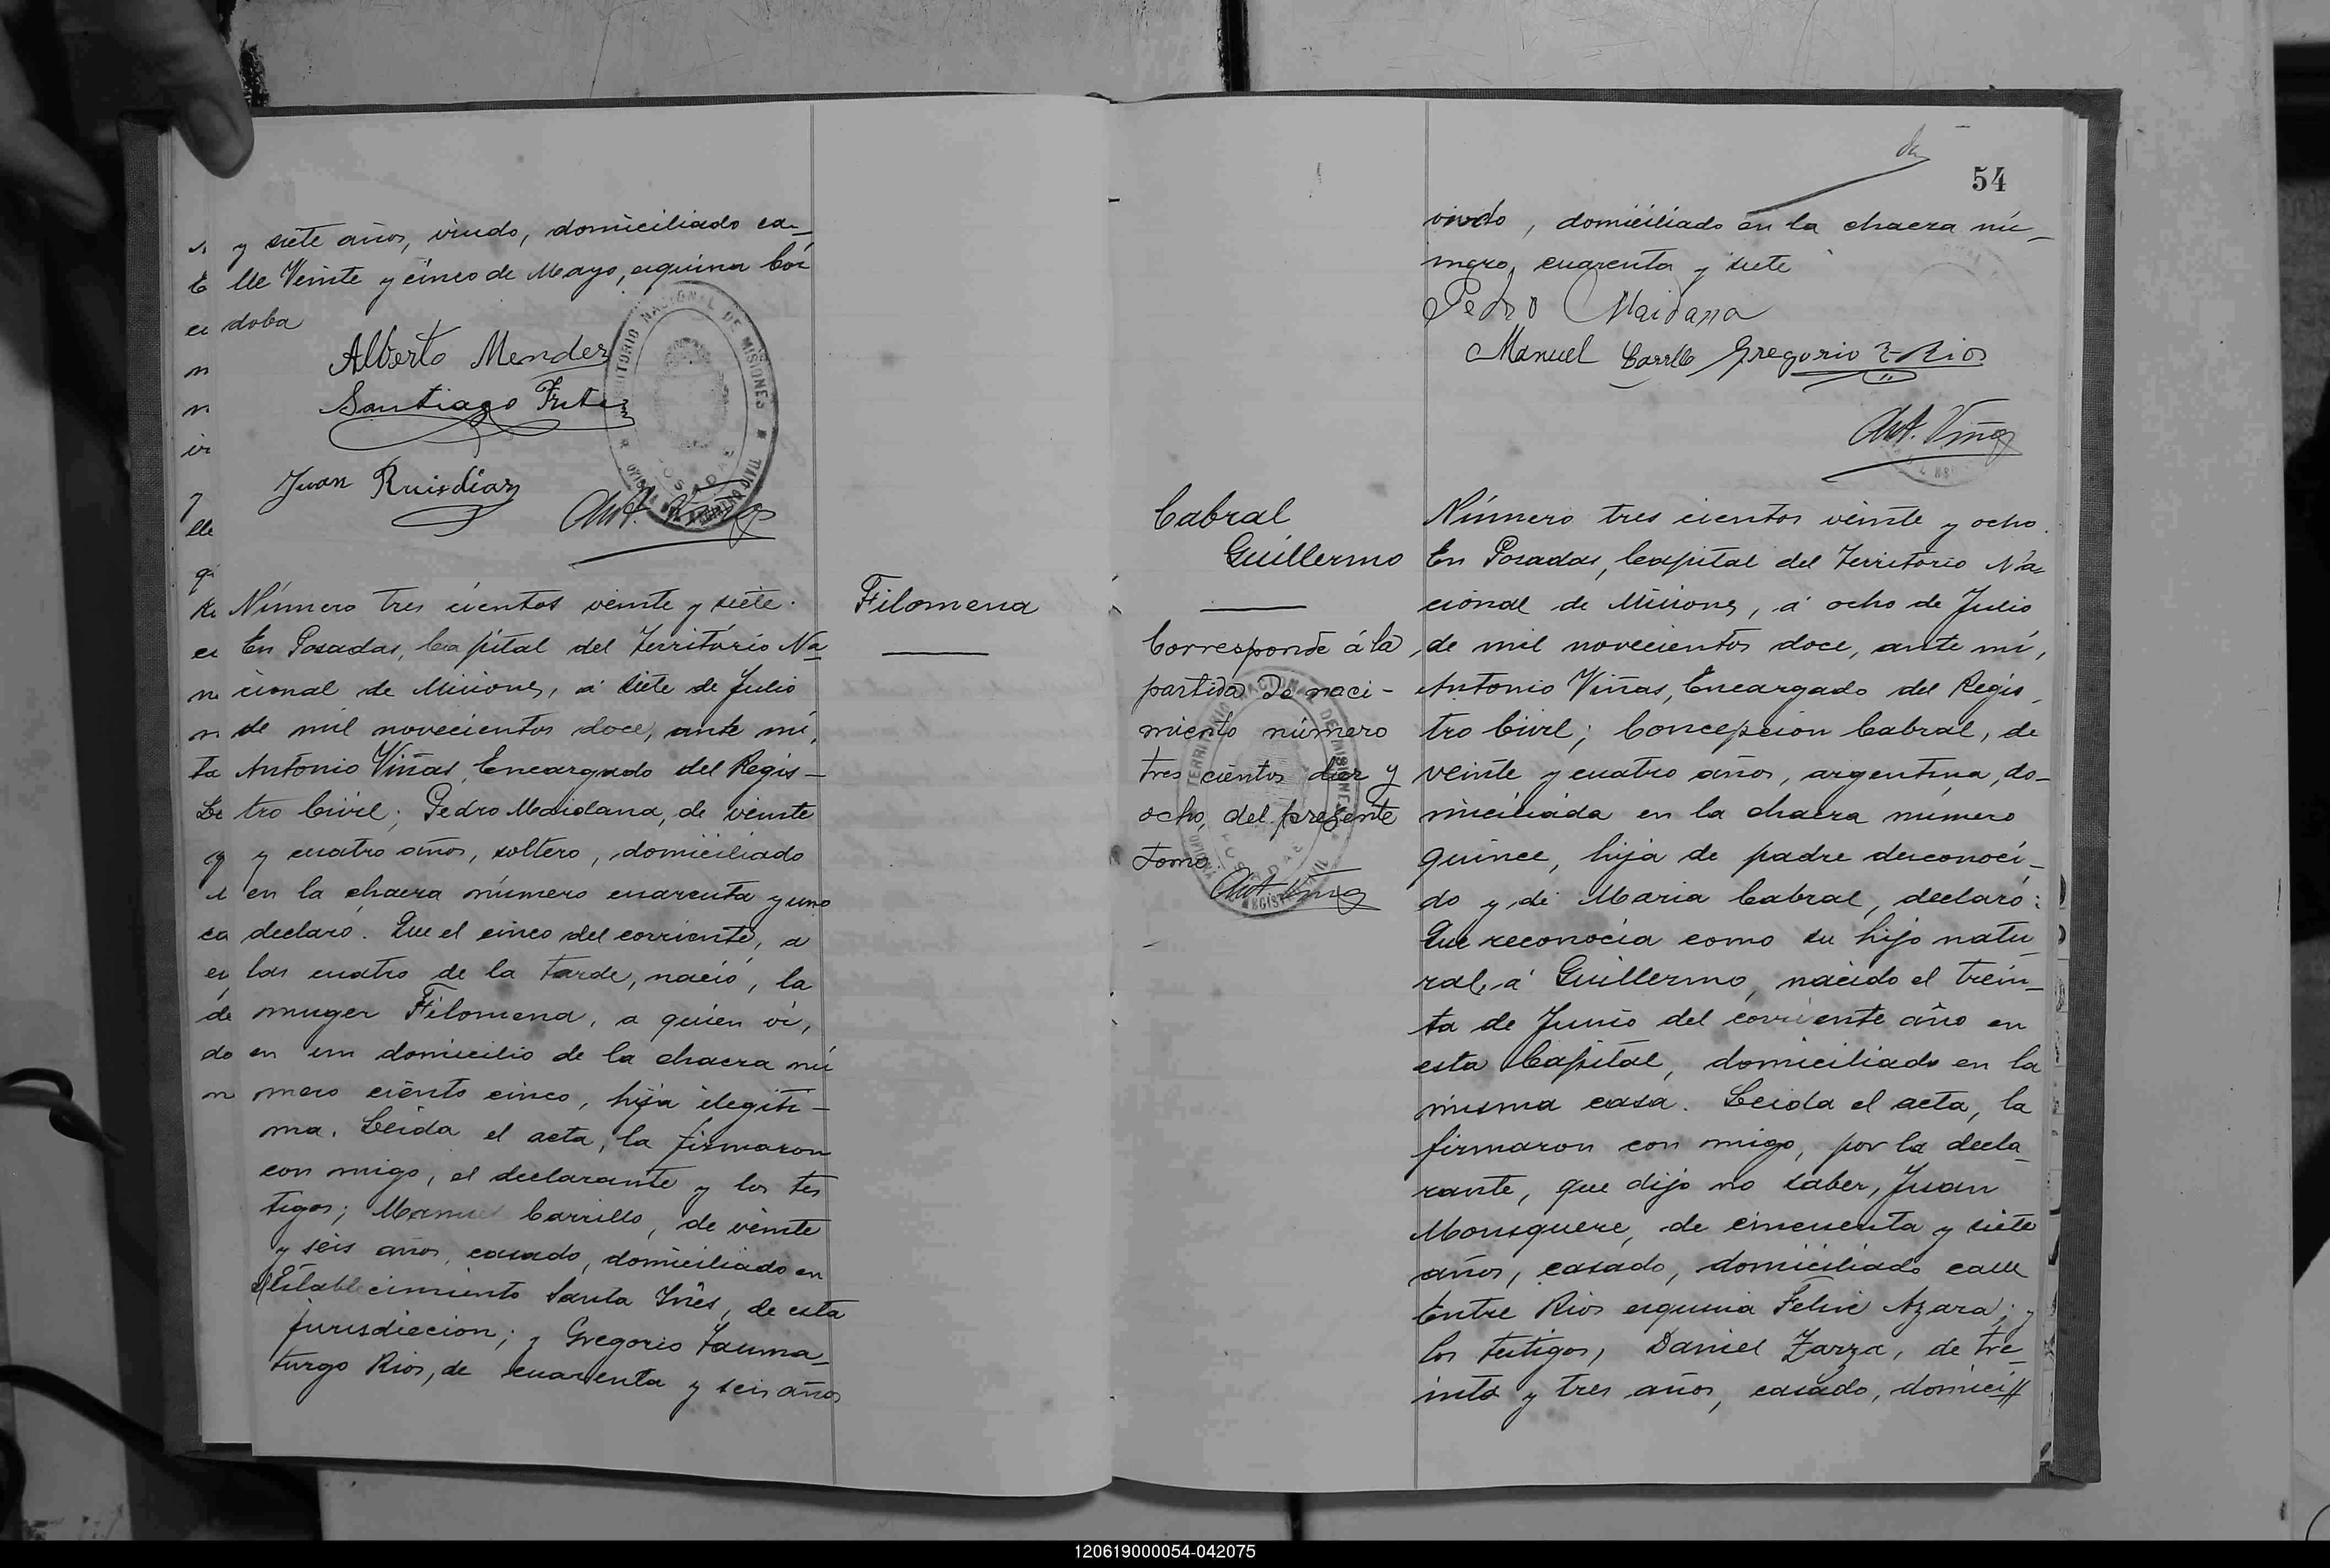 y siete años, viudo, domiciliado ca-
lle Veinte y cinco de Mayo, esquina Cór
doba
Alberto Mendez
Santiago Frete
Juan Ruisdiaz
Ant. Viñas
TERRITORIO NACIONAL DE MISIONES
POSADAS
Filomena
Número tres cientos veinte y siete.
En Posadas, Capital del Territorio Na-
cional de Misiones, á siete de Julio
de mil novecientos doce, ante mí,
Antonio Viñas, Encargado del Regis-
tro Civil; Pedro Maidana, de veinte
y cuatro años, soltero, domiciliado
en la chacra número cuarenta y uno
declaró. Que el cinco del corriente, a
las cuatro de la tarde, nació, la
muger Filomena, a quien vi,
en un domicilio de la chacra nú
mero ciento cinco, hija ilegíti-
ma. Leida el acta, la firmaron
con migo, el declarante y los tes
tigos; Manuel Carrillo, de veinte
y seis años, casado, domiciliado en
el Establecimiento Santa Inés, de esta
jurisdiccion; y Gregorio Tauma-
turgo Rios, de cuarenta y seis años
54
viudo, domiciliado en la chacra nú-
mero, cuarenta y siete
Pedro Maidana
Manuel Carrllo Gregorio T. Rios
Ant. Viñas
Cabral
Guillermo
Corresponde á la
partida de naci-
miento número
tres cientos diez y
ocho, del presente
tomo.
Ant. Viñas
TERRITORIO NACIONAL DE MISIONES
POSADAS
Número tres cientos veinte y ocho.
En Posadas, Capital del Territorio Na-
cional de Misiones, á ocho de Julio
de mil novecientos doce, ante mí,
Antonio Viñas, Encargado del Regis-
tro Civil; Concepcion Cabral, de
veinte y cuatro años, argentina, do-
miciliada en la chacra número
quince, hija de padre desconoci-
do y de Maria Cabral, declaró:
Que reconocia como su hijo natu-
ral, á Guillermo, nacido el trein-
ta de Junio del corriente año en
esta Capital, domiciliado en la
misma casa. Leida el acta, la
firmaron con migo, por la decla-
rante, que dijo no saber, Juan
Mousquere, de cincuenta y siete
años, casado, domiciliado calle
Entre Rios esquina Felix Azara; y
los testigos, Daniel Zarza, de tre-
inta y tres años, casado, domici//
120619000054-042075